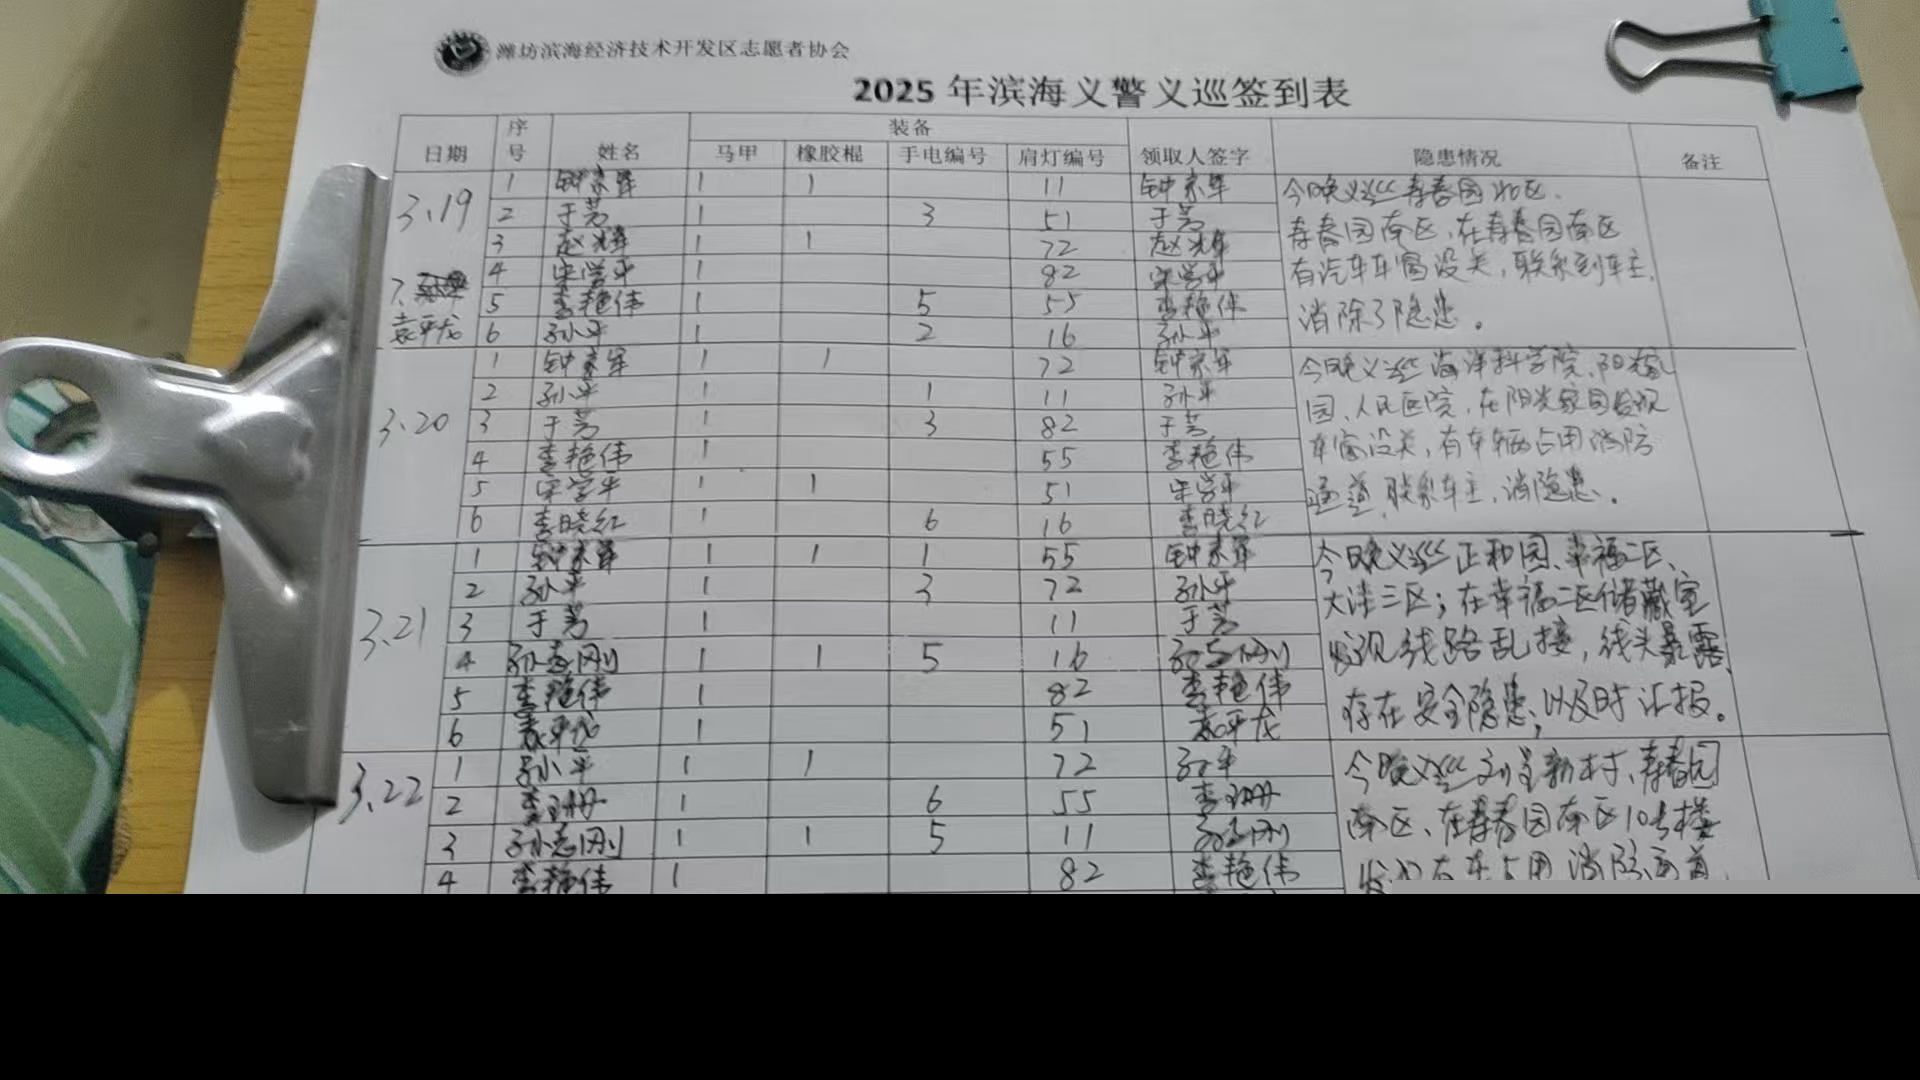 潍坊滨海经济技术开发区志愿者协会
2025 年滨海义警义巡签到表
日期 序号 姓名 装备 领取人签字 隐患情况 备注
马甲 橡胶棍 手电编号 肩灯编号
3.19
1 1 1 11
今晚义巡青春园北区.
2 于芳 1 3 51 于芳
青春园南区,在青春园南区
3 1 1 72
有汽车车窗没关,联系到车主.
4 宋学平 1 82 宋学平
5 李艳伟 1 5 55 李艳伟
消除了隐患。
6 孙平 1 2 16 孙平
7、袁平龙
3.20
1 1 1 72
今晚义巡海洋科学院、阳光家
2 孙平 1 1 11 孙平
园、人民医院,在阳光家园发现
3 于芳 1 3 82 于芳
车窗没关,有车辆占用消防
4 李艳伟 1 55 李艳伟
5 宋学平 1 1 51 宋学平
通道,联系车主,消隐患。
6 李晓红 1 6 16 李晓红
3.21
1 1 1 1 55
今晚义巡正和园、幸福二区、
2 孙平 1 3 72 孙平
大洼三区;在幸福二区储藏室
3 于芳 1 11 于芳
发现线路乱接,线头暴露,
4 孙志刚 1 1 5 16 孙志刚
5 李艳伟 1 82 李艳伟
存在安全隐患,以及时汇报。
6 袁平龙 1 51 袁平龙
3.22
1 孙平 1 1 72 孙平
今晚义巡 新村、青春园
2 1 6 55
南区、在青春园南区10号楼
3 孙志刚 1 1 5 11 孙志刚
4 李艳伟 1 82 李艳伟
发现有车占用消防通道,